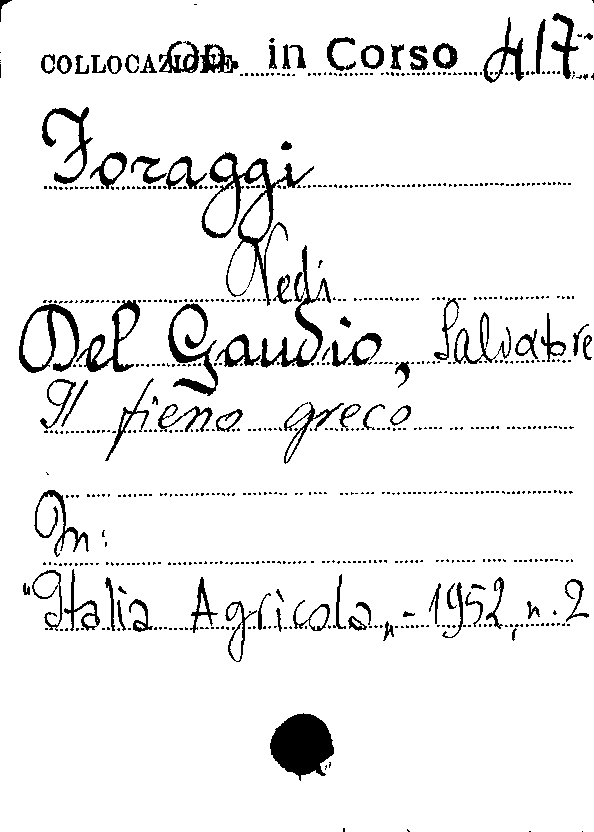 COLLOCAZIONE Op. in Corso 417
Foraggi
Vedi
Del Gaudio, Salvatore
Il fieno greco
In:
"Italia Agricola„ - 1952, n. 2